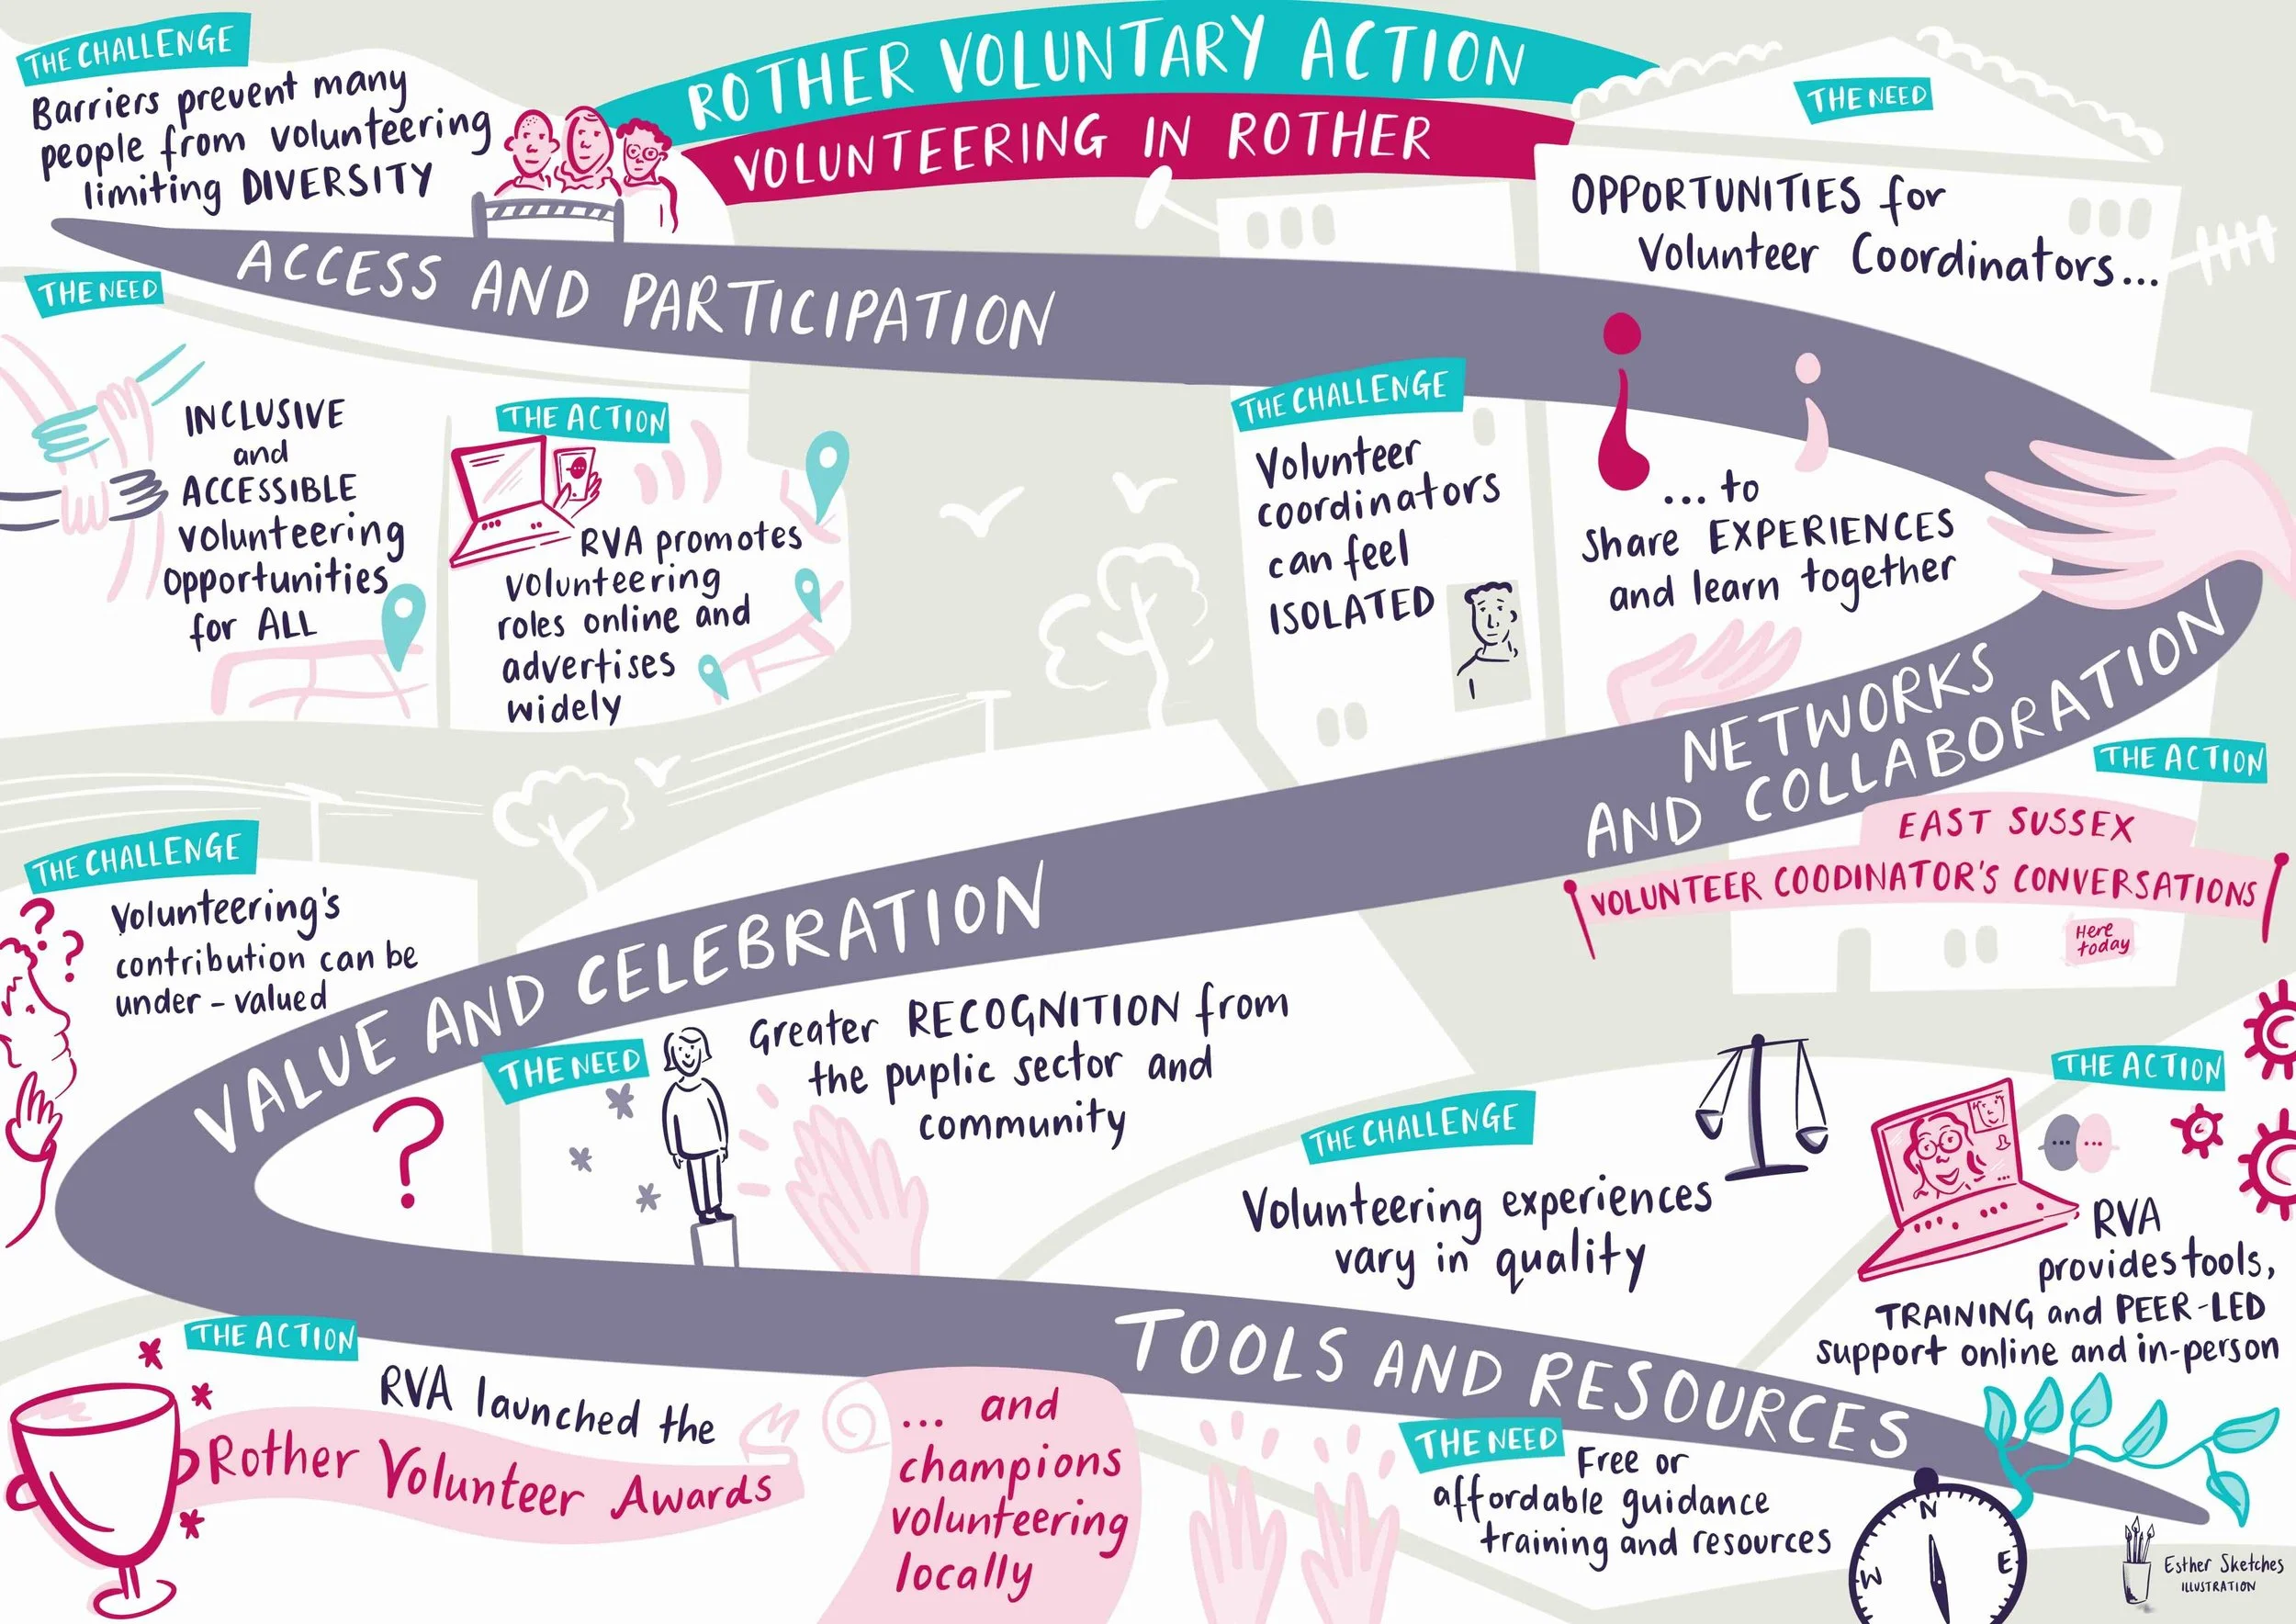 ROTHER VOLUNTARY ACTION
VOLUNTEERING IN ROTHER
THE CHALLENGE
Barriers prevent many
people from volunteering
limiting DIVERSITY
ACCESS AND PARTICIPATION
THE NEED
INCLUSIVE
and
ACCESSIBLE
Volunteering
Opportunities
for ALL
THE ACTION
RVA promotes
volunteering
roles online and
advertises
widely
THE NEED
OPPORTUNITIES for
Volunteer Coordinators...
THE CHALLENGE
Volunteer
coordinators
can feel
ISOLATED
... to
Share EXPERIENCES
and learn together
NETWORKS
AND COLLABORATION
THE ACTION
EAST SUSSEX
VOLUNTEER COODINATOR'S CONVERSATIONS
Here
today
THE CHALLENGE
Volunteering's
contribution can be
under-valued
VALUE AND CELEBRATION
THE NEED
Greater RECOGNITION from
the puplic sector and
community
THE ACTION
RVA launched the
Rother Volunteer Awards
... and
champions
volunteering
locally
THE CHALLENGE
Volunteering experiences
vary in quality
TOOLS AND RESOURCES
THE ACTION
RVA
provides tools,
TRAINING and PEER-LED
support online and in-person
THE NEED
Free or
affordable guidance
training and resources
N
E
W
Esther Sketches
ILLUSTRATION